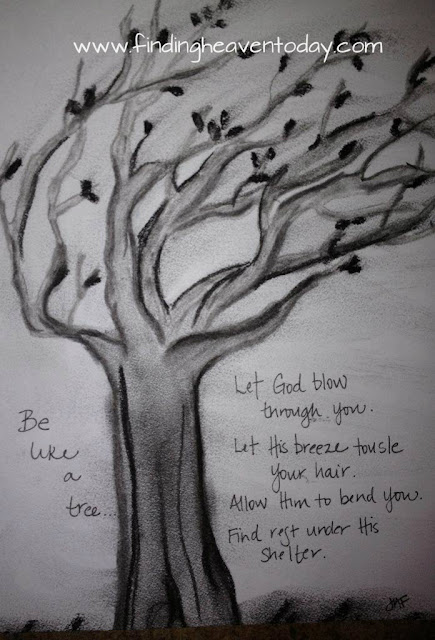 www.findingheaventoday.com
Be
like
a
tree...
Let God blow
through you.
Let His breeze tousle
your hair.
Allow Him to bend you.
Find rest under His
shelter.